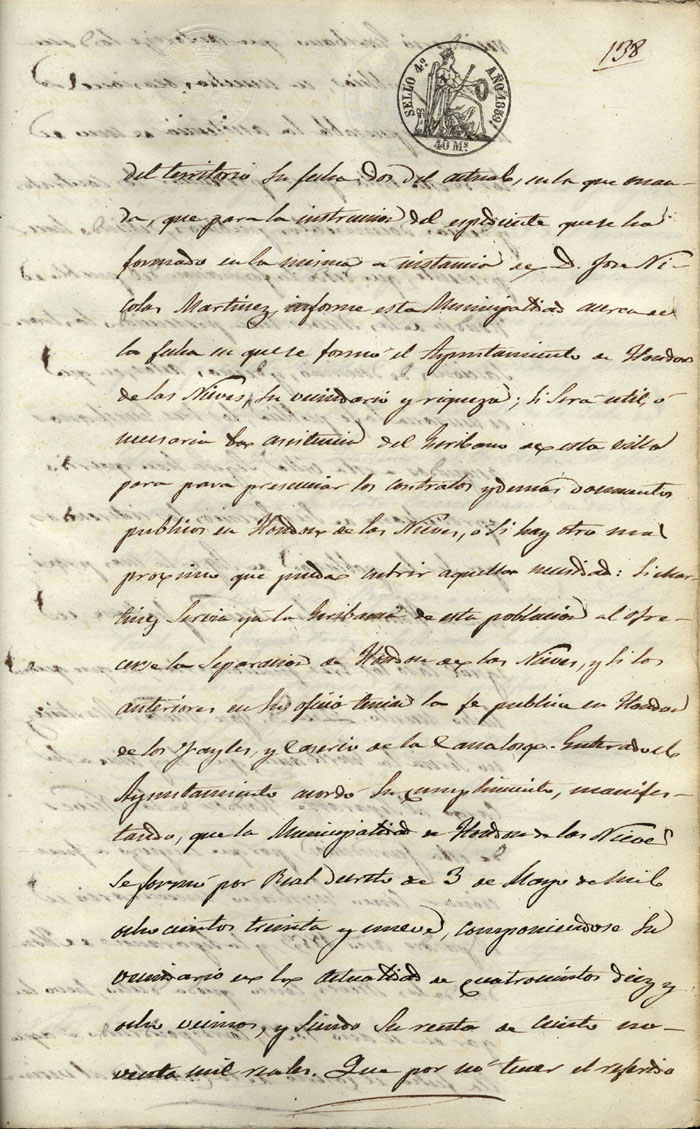 138
SELLO 4º AÑO 1859
40 Ms
del territorio su fecha dos del actual, en la que man-
da, que para la instruccion del espediente que se ha
formado en la misma a instancia de D. Jose Ni-
colas Martinez, informe esta Municipalidad acerca de
la fecha en que se formó el Ayuntamiento de Hondon
de las Nieves, su vecindario y riqueza; si será util, ó
necesaria la asistencia del Escribano de esta villa
para para presenciar los contratos y demas documentos
publicos en Hondon de las Nieves, o si hay otro mas
proximo que pueda cubrir aquella necesidad: Si Mar-
tinez servia ya la Escribania de esta poblacion al ofre-
cerse la separacion de Hondon de las Nieves, y si los
anteriores en su oficio tenian la fe publica en Hondon
de los Frayles, y Caserio de la Canalosa. Enterado el
Ayuntamiento acordo su cumplimiento, manifes-
tando, que la Municipalidad de Hondon de las Nieves
se formó por Real decreto de 3 de Mayo de mil
ocho cientos treinta y nueve, componiendose su
vecindario en la actualidad de cuatrocientos diez y
ocho vecinos, y siendo su renta de ciento no-
venta mil reales. Que por no tener el referido